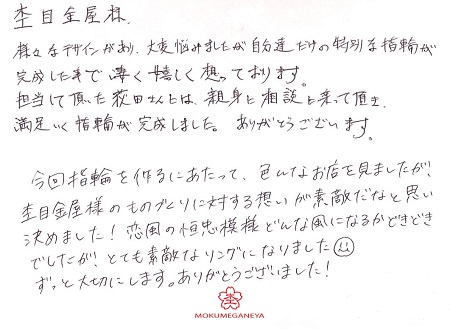 杢目金屋様.
様々なデザインがあり、大変悩みましたが自分達だけの特別な指輪が
完成した事で凄く嬉しく想っております。
担当して頂いた荻田さんには、親身に相談に乗って頂き、
満足いく指輪が完成しました。ありがとうございます。
今回指輪を作るにあたって、色んなお店を見ましたが、
杢目金屋様のものづくりに対する想いが素敵だなと思い
決めました！恋風の恒忠模様どんな風になるかどきどき
でしたが、とても素敵なリングになりました
ずっと大切にします。ありがとうございました！
MOKUMEGANEYA